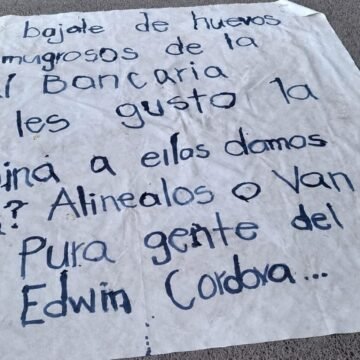 bajale de huevos
mugrosos de la
Bancaria
les gusto la
a ellos damos
? Alinealos o Van
Pura gente del
Edwin Cordova...